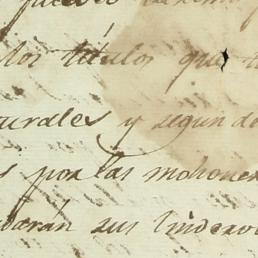 los títulos que
urales y segun de
s por las mohone
darán sus lindero